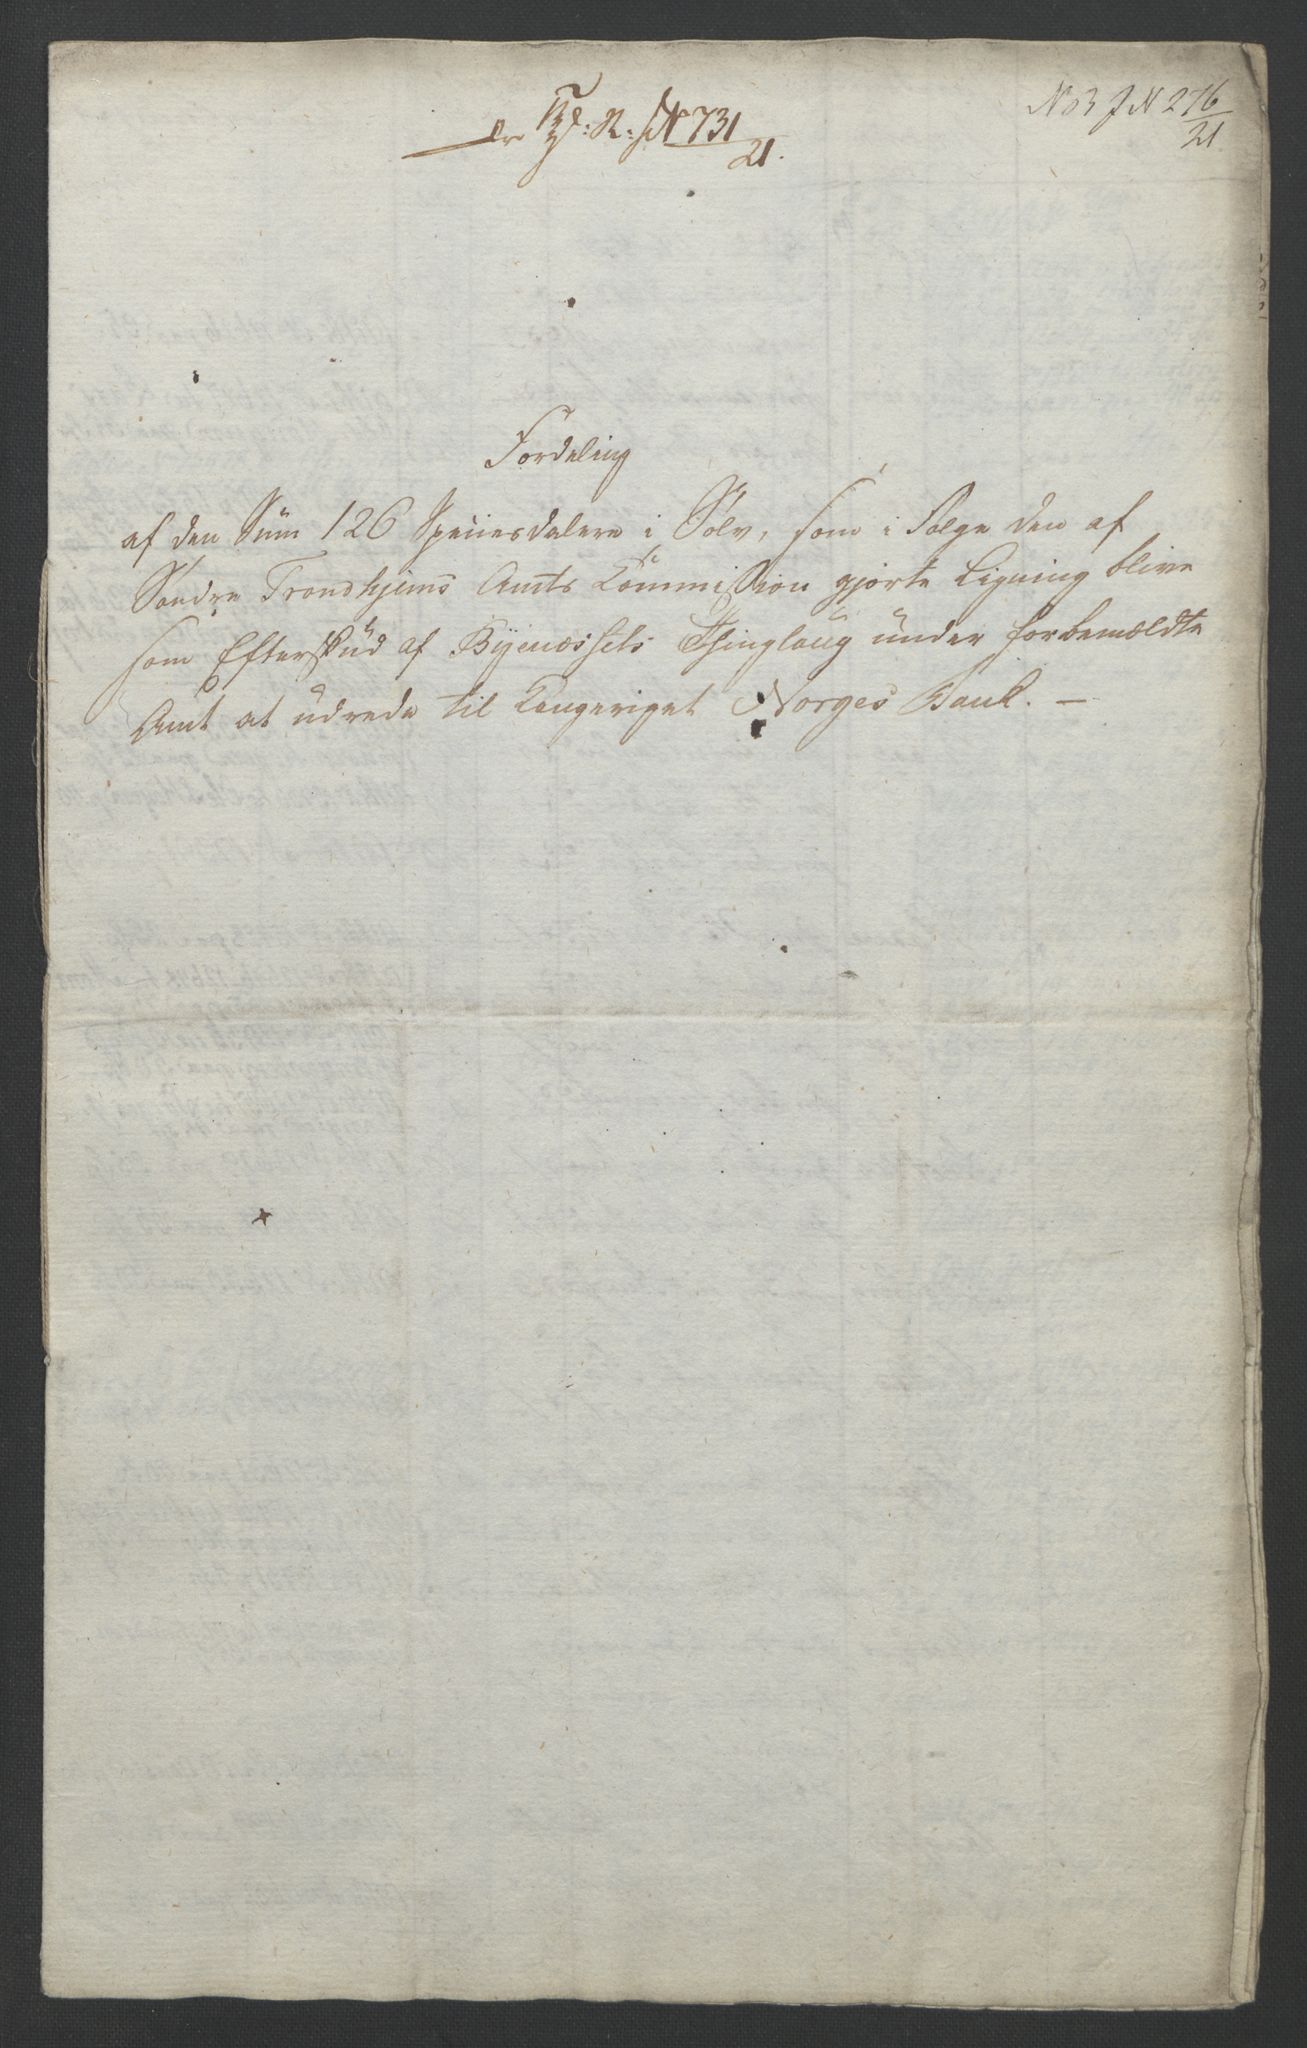 No 3 J N 276/21
R: J N 731/21.
Fordeling
af den Süm 126 Speciesdalere i Sølv, som i Følge den af
Søndre Trondhjems Amts Commission gjorte Ligning blive
som Efterskud af Bÿenæssets Thinglaug under forbemeldte
Amt at udrede til Kongeriget Norges Bank. —